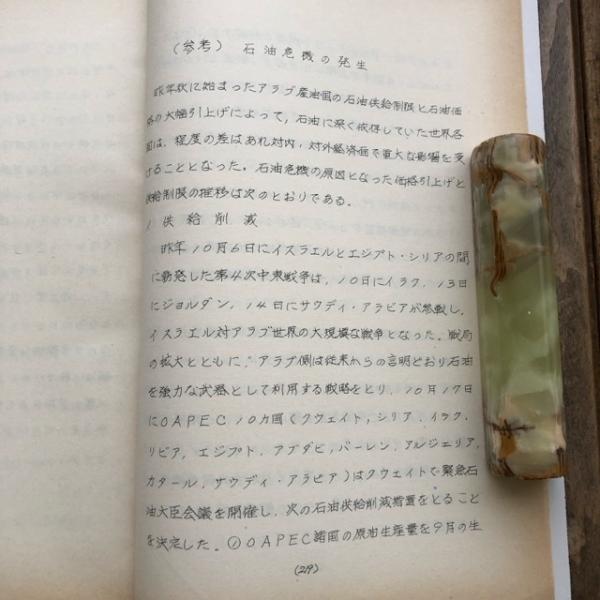 (参考) 石油危機の発生
昨年秋に始まったアラブ産油国の石油供給制限と石油価
格の大幅引上げによって,石油に深く依存していた世界各
国は,程度の差はあれ対内,対外経済面で重大な影響を受
けることとなった。石油危機の原因となった価格引上げと
供給制限の推移は次のとおりである。
1 供給削減
昨年10月6日にイスラエルとエジプト・シリアの間
に勃発した第4次中東戦争は,10日にイラク,13日
にジョルダン,14日にサウディ・アラビアが参戦し,
イスラエル対アラブ世界の大規模な戦争となった。戦局
の拡大とともに,アラブ側は従来からの言明どおり石油
を強力な武器として利用する戦略をとり,10月17日
にOAPEC10カ国(クウェイト,シリア,イラク,
リビア,エジプト,アブダビ,バーレン,アルジェリア,
カタール,サウディ・アラビア)はクウェイトで緊急石
油大臣会議を開催し,次の石油供給削減措置をとること
を決定した。①OAPEC諸国の原油生産量を9月の生
(219)